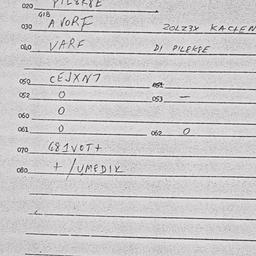 020
GIB
030 A VORF ZOLZ3X KACFEN
040 VARF DI PILEKSE
050 CEJXN7
052 0 053 —
060 0
061 0 062 0
070 681VOT+
080 + /UMEDIK